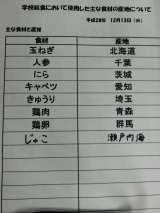 学校給食において使用した主な食材の産地について
平成28年 12月13日 (火)
主な食材と産地
食材 産地
玉ねぎ 北海道
人参 千葉
にら 茨城
キャベツ 愛知
きゅうり 埼玉
鶏肉 青森
鶏卵 群馬
じゃこ 瀬戸内海